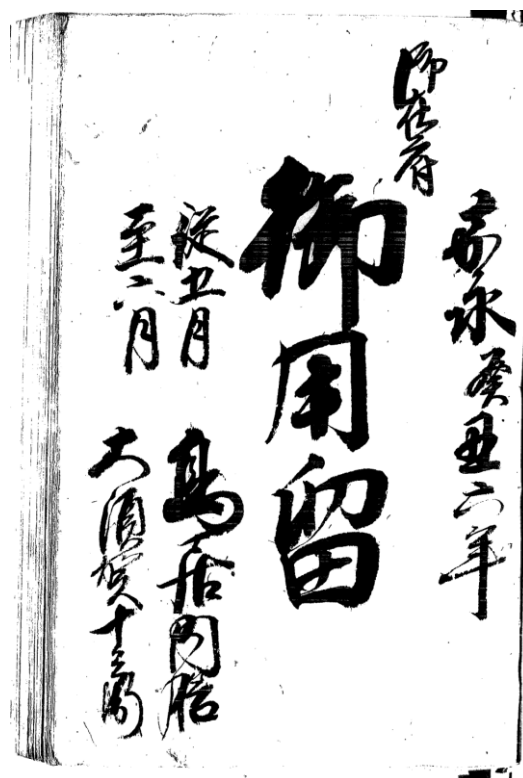 嘉永癸丑六年
御在府
御用留
従五月
至六月
鳥居
大須賀十